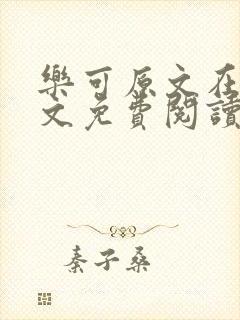 樂可原文在
文免費閱讀
秦子桑